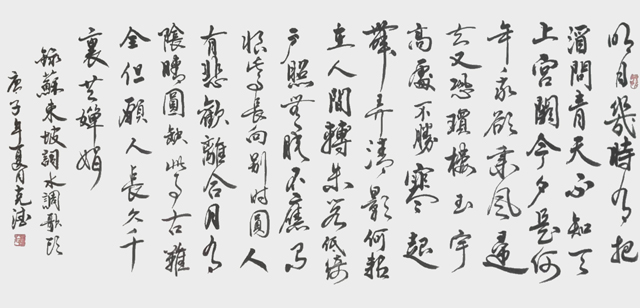 明月幾時有把
酒問青天不知天
上宮闕今夕是何
年我欲乘風歸
去又恐瓊樓玉宇
高處不勝寒起
舞弄清影何似
在人間轉朱閣低綺
戶照無眠不應有
恨何事長向别时圓人
有悲歡離合月有
陰晴圓缺此事古難
全但願人長久千
裏共嬋娟
錄蘇東坡詞水調歌頭
庚子年夏月克